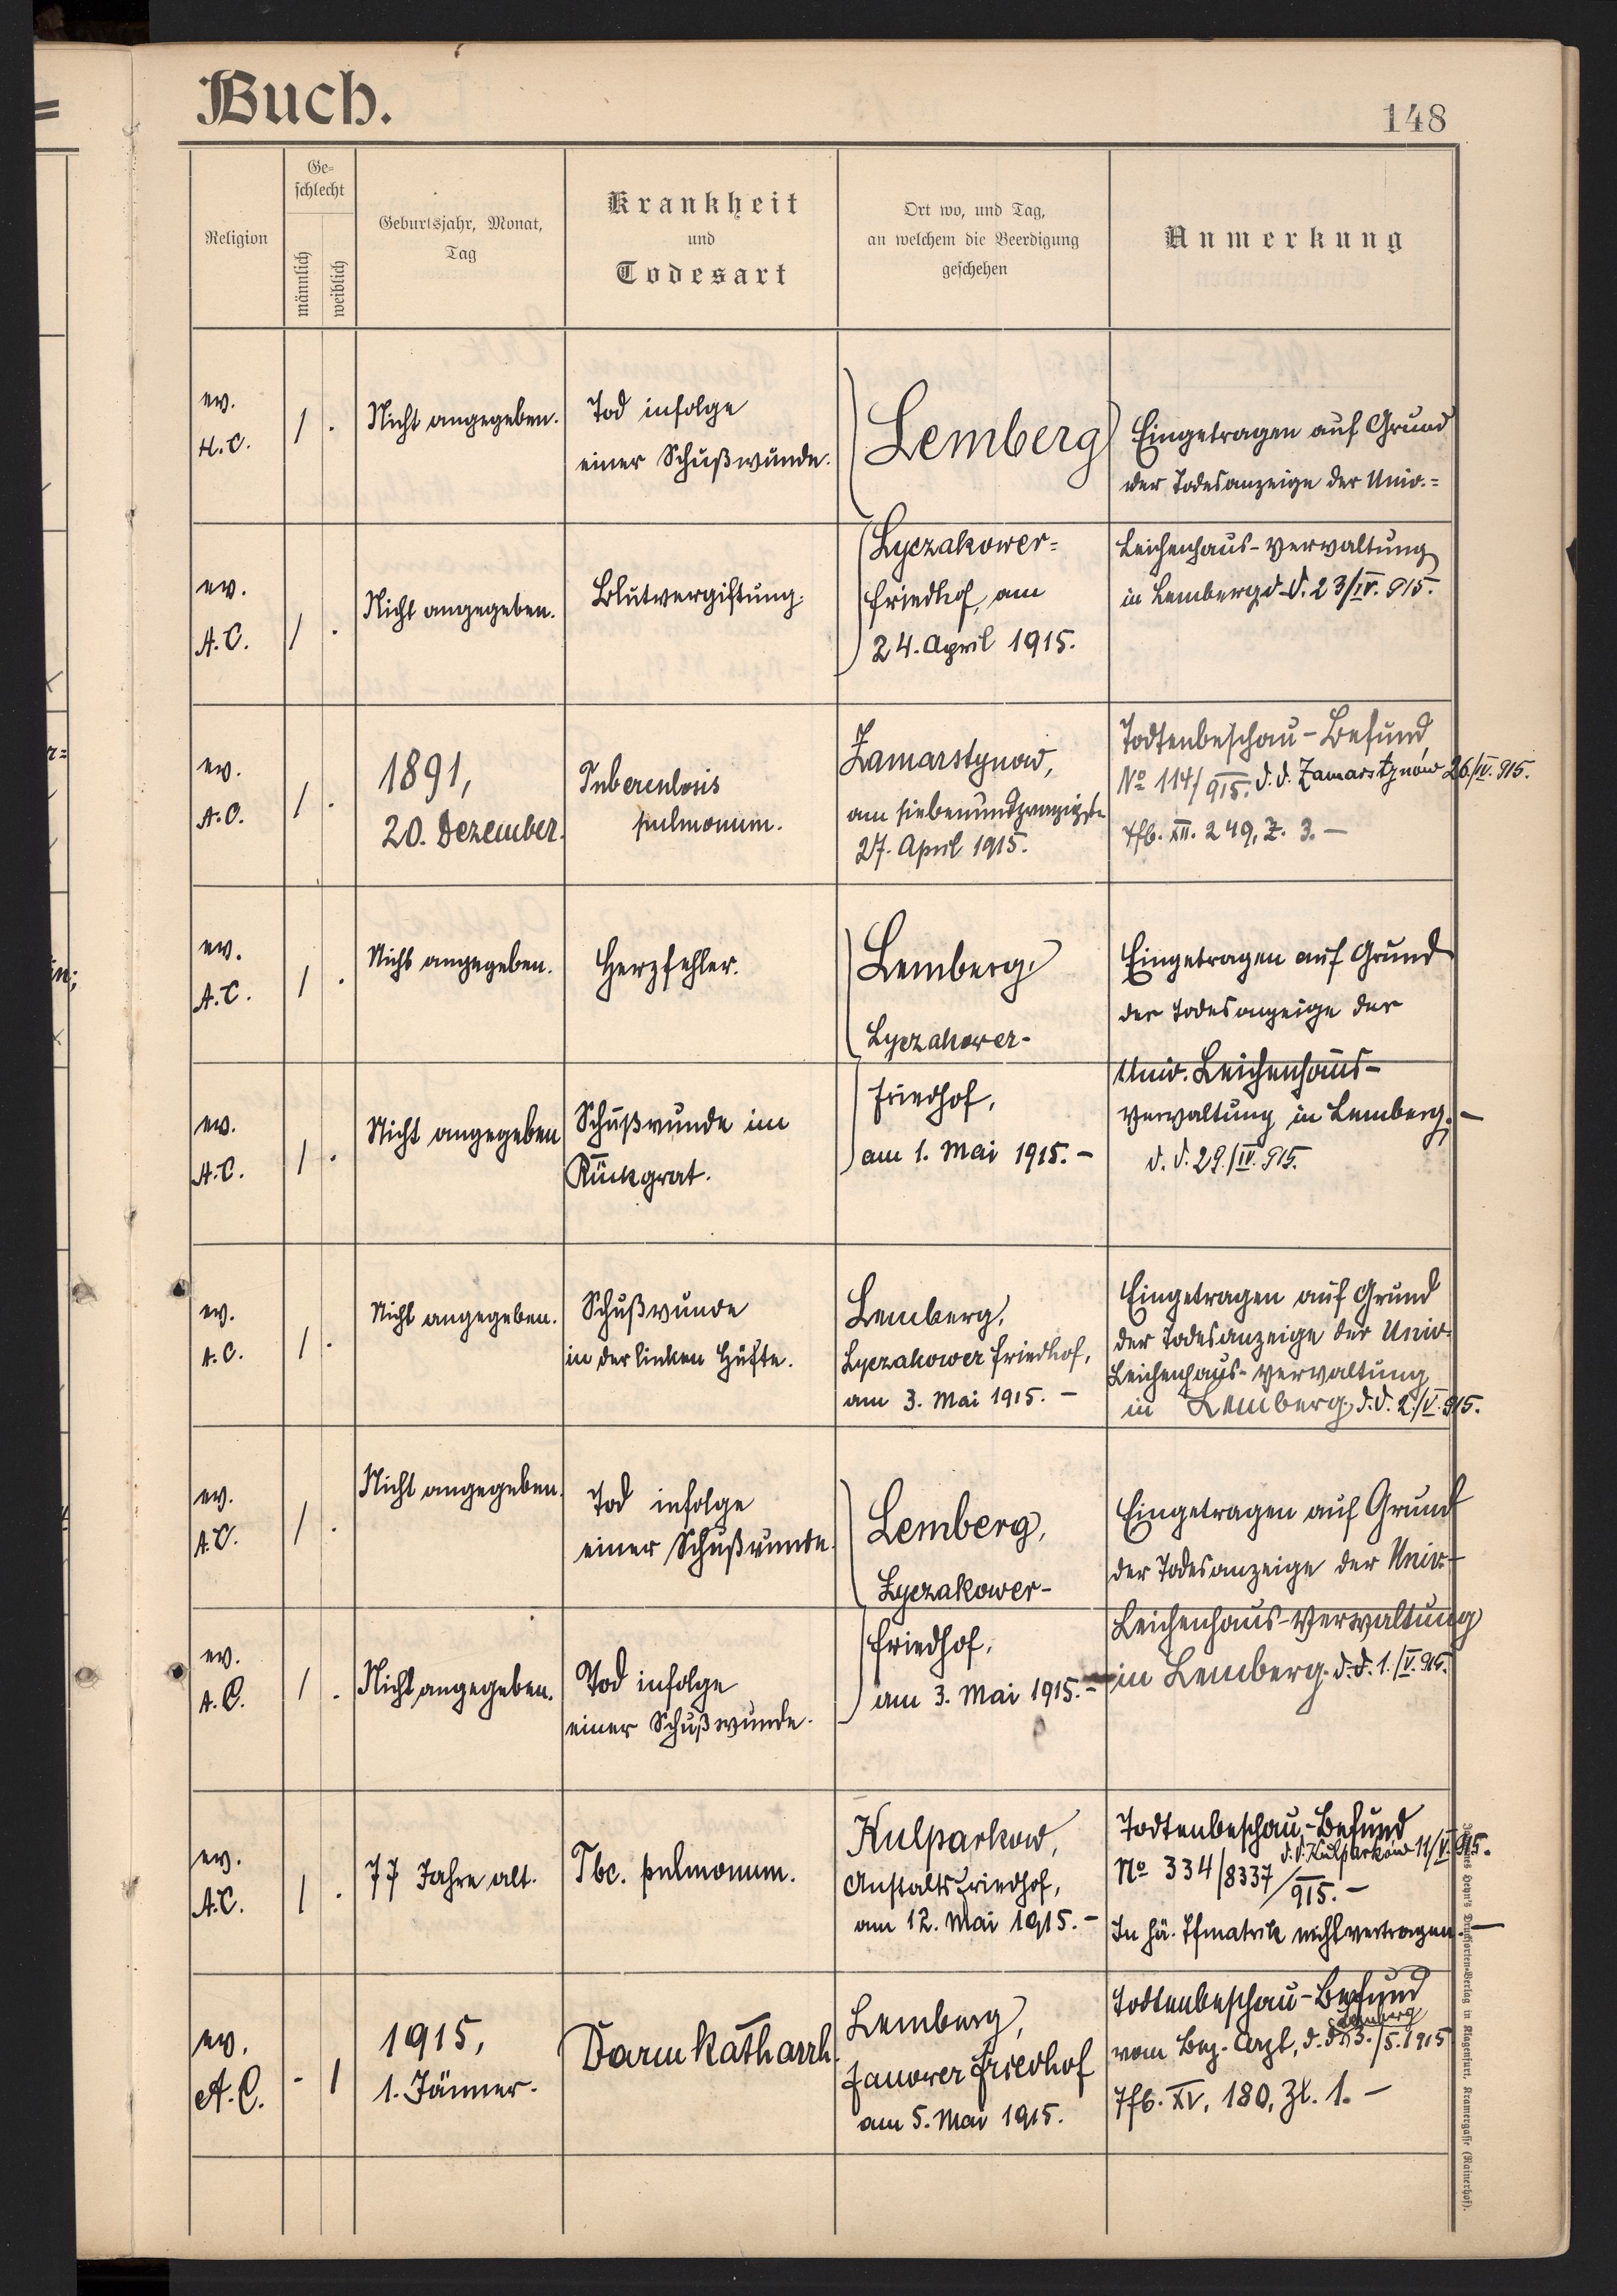 Buch.
148
Religion
Ge-
schlecht
männlich
weiblich
Geburtsjahr, Monat,
Tag
Krankheit
und
Todesart
Ort wo, und Tag,
an welchem die Beerdigung
geschehen
Anmerkung
ev.
H.C.
1 .
Nicht angegeben.
Tod infolge
einer Schußwunde.
Lemberg
Eingetragen auf Grund
der Todesanzeige der Univ.=
ev.
A.C.
1 .
Nicht angegeben.
Blutvergiftung.
Lyczakower=
friedhof, am
24. April 1915.
Leichenhaus-Verwaltung
in Lemberg d.d. 23/IV. 915.
ev.
A.C.
1 .
1891,
20. Dezember.
Tuberculosis
pulmonum.
Zamarstynow,
am siebenundzwanzigsten
27. April 1915.
Todtenbeschau-Befund
No 114/915. d.d. Zamarstynów 26./IV. 915.
Tfb. XII. 249, Z. 3. —
ev.
A.C.
1 .
Nicht angegeben.
Herzfehler.
Lemberg,
Lyczakower-
Eingetragen auf Grund
der Todesanzeige der
ev.
A.C.
1 .
Nicht angegeben
Schußwunde im
Rückgrat.
friedhof,
am 1. Mai 1915. -
Univ. Leichenhaus-
Verwaltung in Lemberg. —
d. d. 29./IV. 915.
ev.
A.C.
1 .
Nicht angegeben.
Schußwunde
in der linken Hüfte.
Lemberg,
Lyczakower friedhof,
am 3. Mai 1915. -
Eingetragen auf Grund
der Todesanzeige der Univ-
Leichenhaus-Verwaltung
in Lemberg, d.d. 2./V. 915.
ev.
A.C.
1 .
Nicht angegeben.
Tod infolge
einer Schußwunde.
Lemberg,
Lyczakower-
Eingetragen auf Grund
der Todesanzeige der Univ-
ev.
A.C.
1 .
Nicht angegeben.
Tod infolge
einer Schußwunde.
friedhof,
am 3. Mai 1915. -
Leichenhaus-Verwaltung
in Lemberg. d.d. 1./V. 915.
ev.
A.C.
1 .
77 Jahre alt.
Tbc. pulmonum.
Kulparkow,
Anstaltsfriedhof,
am 12. Mai 1915. -
Todtenbeschau-Befund
d.d. Kulparków 11/V. 915.
No 334/8337/915. —
In hä. Tfmatrik nicht vertragen. —
ev.
A.C.
- 1
1915,
1. Jänner.
Darmkatharrh.
Lemberg,
Janower friedhof
am 5. Mai 1915.
Todtenbeschau-Befund
Lemberg
vom Bez. Arzt, d.d. 3./5. 1915
Tfb. XV, 180, Zl. 1. —
Johannes Heyn's Drucksorten-Verlag in Klagenfurt, Kramergasse (Rainerhof).